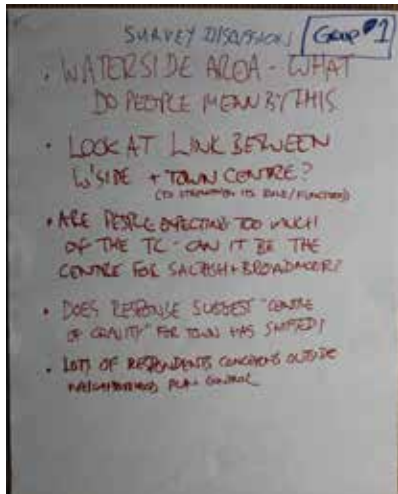 SURVEY DISCUSSION
GROUP #1
• WATERSIDE AREA - WHAT
DO PEOPLE MEAN BY THIS
• LOOK AT LINK BETWEEN
W'SIDE + TOWN CENTRE?
(TO STRENGTHEN ITS ROLE/FUNCTION)
• ARE PEOPLE EXPECTING TOO MUCH
OF THE TC - CAN IT BE THE
CENTRE FOR SALTASH + BROADMOOR?
• DOES RESPONSE SUGGEST "CENTRE
OF GRAVITY" FOR TOWN HAS SHIFTED?
• LOTS OF RESPONDENTS CONCERNS OUTSIDE
NEIGHBOURHOOD PLAN CONTROL